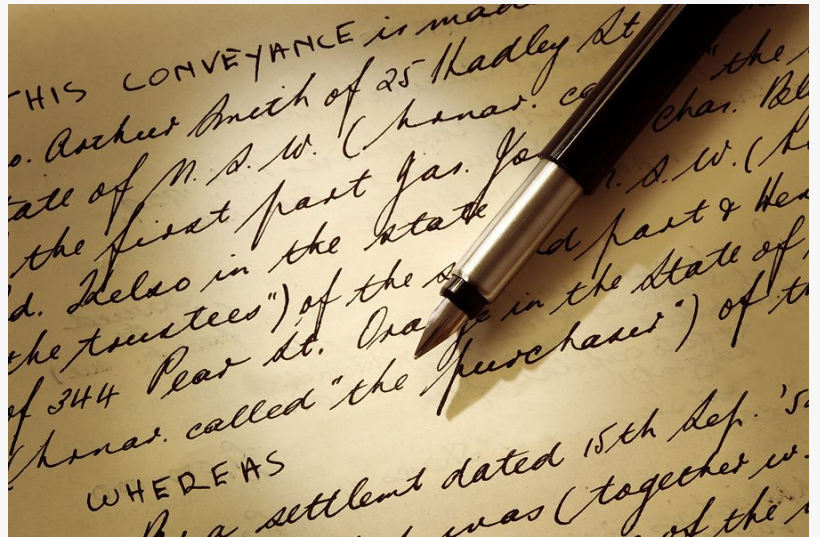 THIS CONVEYANCE is made
o. Arthur Smith of 25 Hadley St
tate of N. S. W. (hrnar. ca "the
the first part Jas. Jo Chas. Bl
d. Kelso in the state N. S. W. (h
the trustees") of the s d part & Hen
of 344 Pear St. Ora ge in the State of
(hrnar. called "the purchaser") of th
WHEREAS
By a settlemt dated 15th Sep. '5
was (together w.
of the